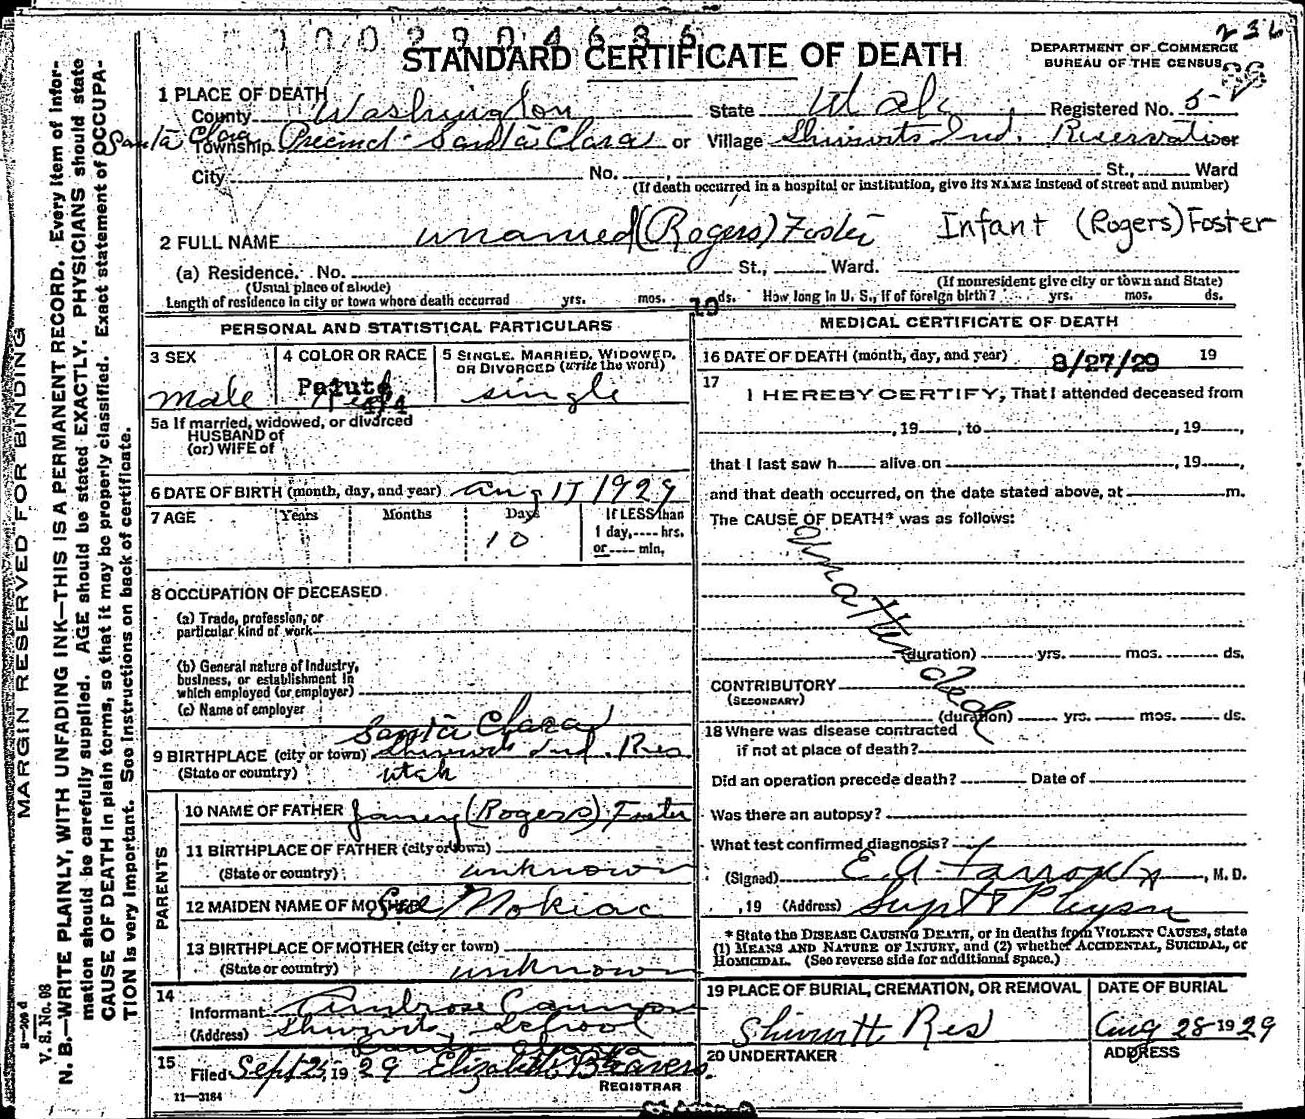 1002904636
236
STANDARD CERTIFICATE OF DEATH
DEPARTMENT OF COMMERCE
BUREAU OF THE CENSUS
1 PLACE OF DEATH
County Washington State Utah Registered No. 5-
Santa Clara
Township Precinct Santa Clara or Village Shivwits Ind. Riservation or
City No. , St., Ward
(If death occurred in a hospital or institution, give its NAME instead of street and number)
2 FULL NAME unamed (Rogers) Foster Infant (Rogers) Foster
(a) Residence. No. St., Ward.
(Usual place of abode) (If nonresident give city or town and State)
Length of residence in city or town where death occurred yrs. mos. 10 ds. How long in U. S., if of foreign birth? yrs. mos. ds.
PERSONAL AND STATISTICAL PARTICULARS
3 SEX male
4 COLOR OR RACE Paiute 4/4
5 SINGLE, MARRIED, WIDOWED, OR DIVORCED (write the word) single
5a If married, widowed, or divorced
HUSBAND of
(or) WIFE of
6 DATE OF BIRTH (month, day, and year) Aug 17 1929
7 AGE Years Months Days If LESS than
10 1 day, hrs.
or min.
8 OCCUPATION OF DECEASED
(a) Trade, profession, or
particular kind of work
(b) General nature of industry,
business, or establishment in
which employed (or employer)
(c) Name of employer
Santa Clara
9 BIRTHPLACE (city or town) Shivwits Ind. Res
(State or country) Utah
PARENTS
10 NAME OF FATHER (Rogers) Foster
11 BIRTHPLACE OF FATHER (city or town)
(State or country) unknown
12 MAIDEN NAME OF MOTHER Sue Mokiac
13 BIRTHPLACE OF MOTHER (city or town)
(State or country) unknown
14
Informant Ambrose Cannon
(Address) Shivwits School
Santa Clara
15
Filed Sept 25, 1929 Elizabeth
REGISTRAR
11-3184
MEDICAL CERTIFICATE OF DEATH
16 DATE OF DEATH (month, day, and year) 8/27/29 19
17
I HEREBY CERTIFY, That I attended deceased from
, 19 , to , 19 ,
that I last saw h alive on , 19 ,
and that death occurred, on the date stated above, at m.
The CAUSE OF DEATH* was as follows:
Unattended
(duration) yrs. mos. ds.
CONTRIBUTORY
(SECONDARY)
(duration) yrs. mos. ds.
18 Where was disease contracted
if not at place of death?
Did an operation precede death? Date of
Was there an autopsy?
What test confirmed diagnosis?
(Signed) E. A. Farrow, M. D.
, 19 (Address) Supt & Physn
* State the DISEASE CAUSING DEATH, or in deaths from VIOLENT CAUSES, state
(1) MEANS AND NATURE OF INJURY, and (2) whether ACCIDENTAL, SUICIDAL, or
HOMICIDAL. (See reverse side for additional space.)
19 PLACE OF BURIAL, CREMATION, OR REMOVAL
Shivwitt Res
DATE OF BURIAL
Aug 28 1929
20 UNDERTAKER
ADDRESS
MARGIN RESERVED FOR BINDING
V. S. No. 98
N. B.—WRITE PLAINLY, WITH UNFADING INK—THIS IS A PERMANENT RECORD. Every item of infor-
mation should be carefully supplied. AGE should be stated EXACTLY. PHYSICIANS should state
CAUSE OF DEATH in plain terms, so that it may be properly classified. Exact statement of OCCUPA-
TION is very important. See instructions on back of certificate.